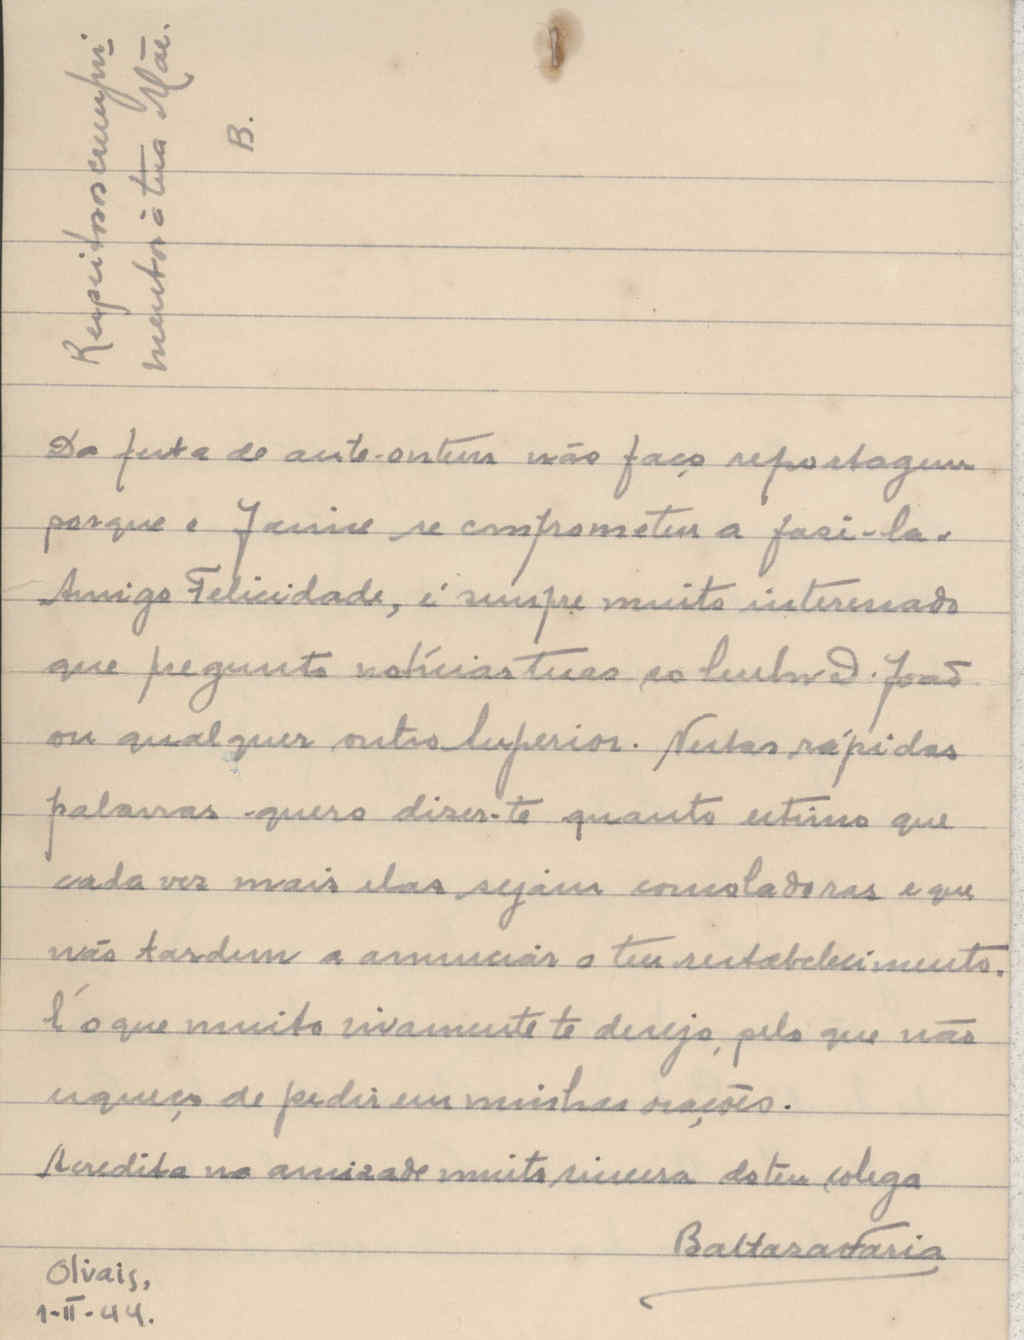 Respeitosos cumpri-
mentos à tua Mãe.
B.
Da festa de ante-ontem não faço reportagem
porque o Janine se comprometeu a fazê-la.
Amigo Felicidade, é sempre muito interessado
que pegunto notícias tuas ao Senhor D. João
ou qualquer outro Superior. Nestas rápidas
palavras quero dizer-te quanto estimo que
cada vez mais elas sejam consoladoras e que
não tardem a anunciar o teu restabelecimento.
É o que muito vivamente te desejo, pelo que não
esqueço de pedir em minhas orações.
Acredita na amizade muito sincera do teu colega
Baltasar Faria
Olivais,
1-II-44.